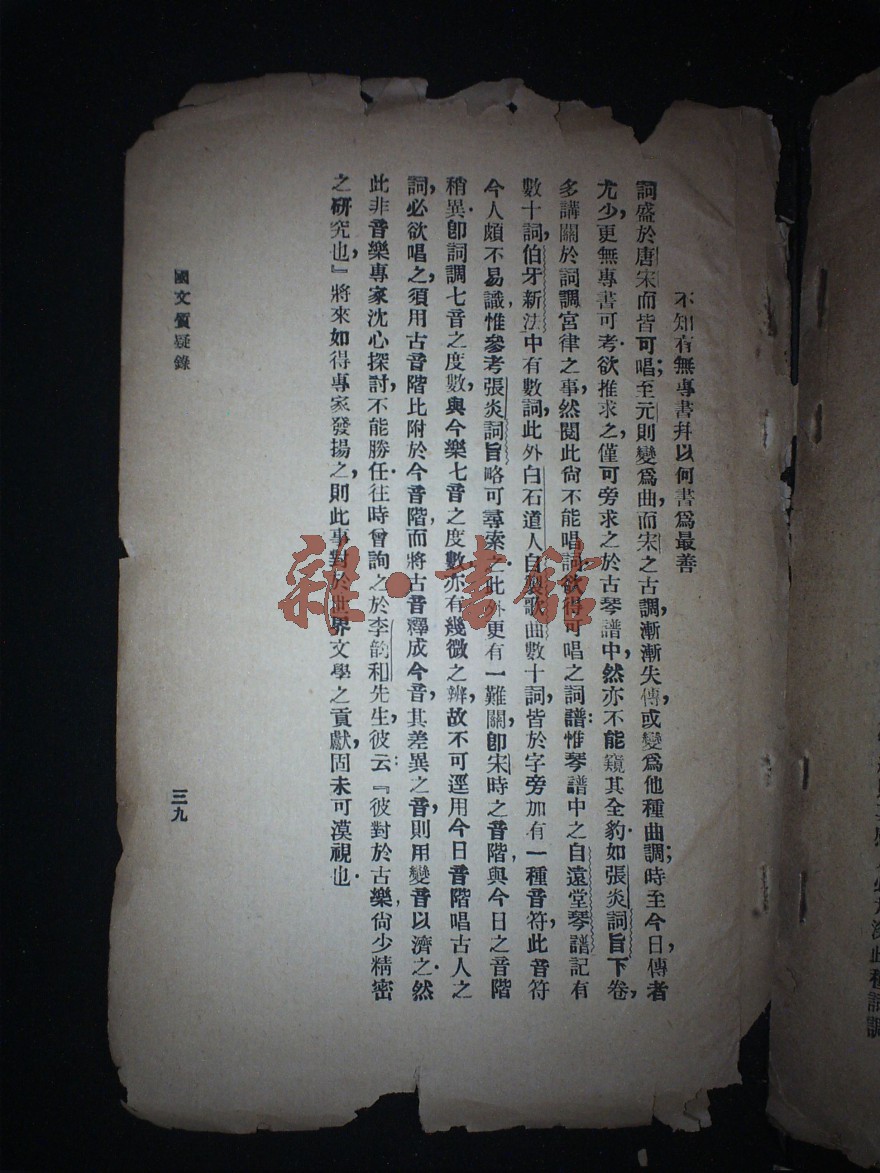 不知有無專書幷以何書爲最善
詞盛於唐宋而皆可唱；至元則變爲曲，而宋之古調，漸漸失傳，或變爲他種曲調；時至今日，傳者
尤少，更無專書可考．欲推求之，僅可旁求之於古琴譜中，然亦不能窺其全豹．如張炎詞旨下卷，
多講關於詞調宮律之事，然閱此尙不能唱詞，欲得可唱之詞譜：惟琴譜中之自遠堂琴譜記有
數十詞，伯牙新法中有數詞，此外白石道人自製歌曲數十詞，皆於字旁加有一種音符，此音符
今人頗不易識，惟參考張炎詞旨略可尋索之．此外更有一難關，卽宋時之音階，與今日之音階
稍異．卽詞調七音之度數，與今樂七音之度數亦有幾微之辨，故不可逕用今日音階唱古人之
詞，必欲唱之，須用古音階比附於今音階，而將古音釋成今音，其差異之音，則用變音以濟之．然
此非音樂專家沈心探討，不能勝任．往時曾詢之於李韵和先生，彼云：『彼對於古樂，尙少精密
之研究也，』將來如得專家發揚之，則此事對於世界文學之貢獻，固未可漠視也．
國文質疑錄
三九
雜·書館
此種詞調